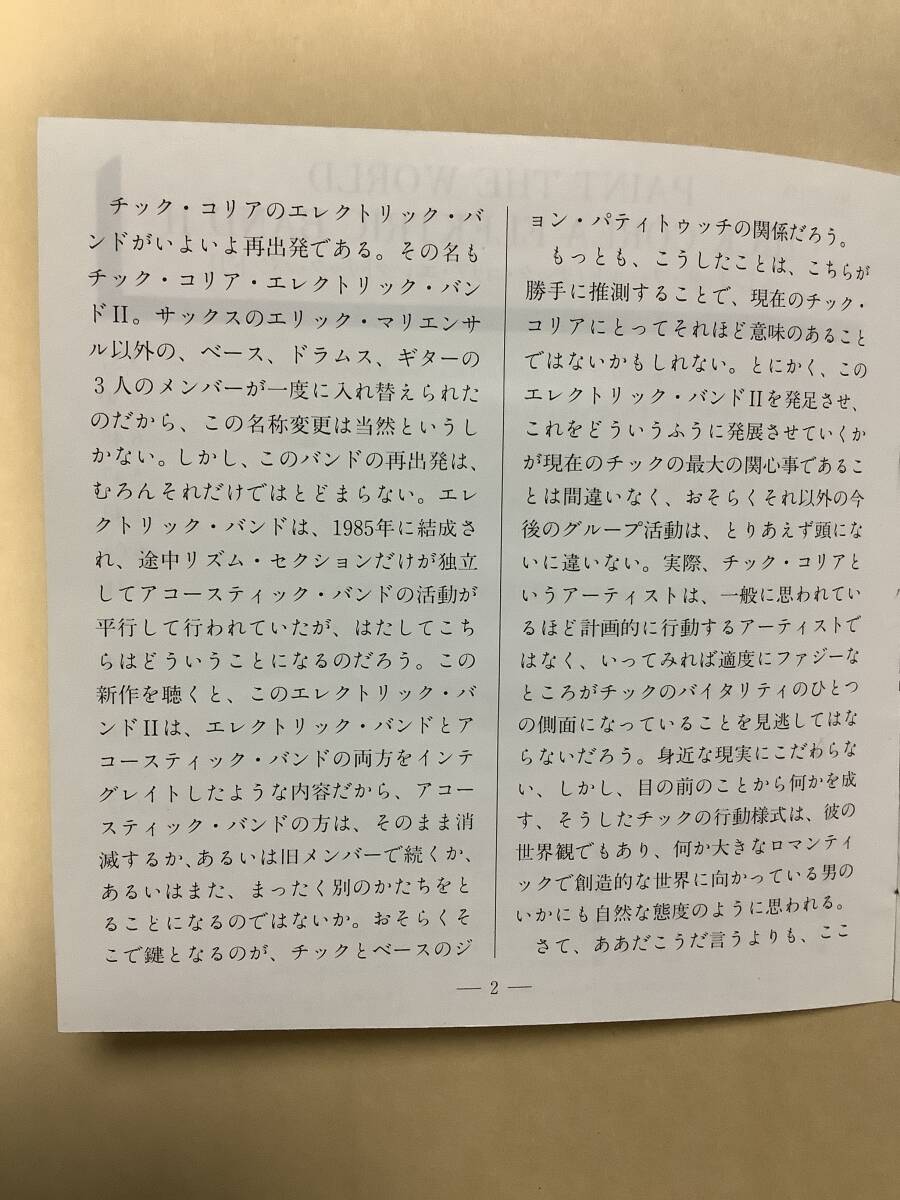 チック・コリアのエレクトリック・バ
ンドがいよいよ再出発である。その名も
チック・コリア・エレクトリック・バン
ドII。サックスのエリック・マリエンサ
ル以外の、ベース、ドラムス、ギターの
3人のメンバーが一度に入れ替えられた
のだから、この名称変更は当然というし
かない。しかし、このバンドの再出発は、
むろんそれだけではとどまらない。エレ
クトリック・バンドは、1985年に結成さ
れ、途中リズム・セクションだけが独立
してアコースティック・バンドの活動が
平行して行われていたが、はたしてこち
らはどういうことになるのだろう。この
新作を聴くと、このエレクトリック・バ
ンドIIは、エレクトリック・バンドとア
コースティック・バンドの両方をインテ
グレイトしたような内容だから、アコー
スティック・バンドの方は、そのまま消
滅するか、あるいは旧メンバーで続くか、
あるいはまた、まったく別のかたちをと
ることになるのではないか。おそらくそ
こで鍵となるのが、チックとベースのジ
ョン・パティトゥッチの関係だろう。
もっとも、こうしたことは、こちらが
勝手に推測することで、現在のチック・
コリアにとってそれほど意味のあること
ではないかもしれない。とにかく、この
エレクトリック・バンドIIを発足させ、
これをどういうふうに発展させていくか
が現在のチックの最大の関心事であるこ
とは間違いなく、おそらくそれ以外の今
後のグループ活動は、とりあえず頭にな
いに違いない。実際、チック・コリアと
いうアーティストは、一般に思われてい
るほど計画的に行動するアーティストで
はなく、いってみれば適度にファジーな
ところがチックのバイタリティのひとつ
の側面になっていることを見逃してはな
らないだろう。身近な現実にこだわらな
い、しかし、目の前のことから何かを成
す、そうしたチックの行動様式は、彼の
世界観でもあり、何か大きなロマンティ
ックで創造的な世界に向かっている男の
いかにも自然な態度のように思われる。
さて、ああだこうだ言うよりも、ここ
— 2 —